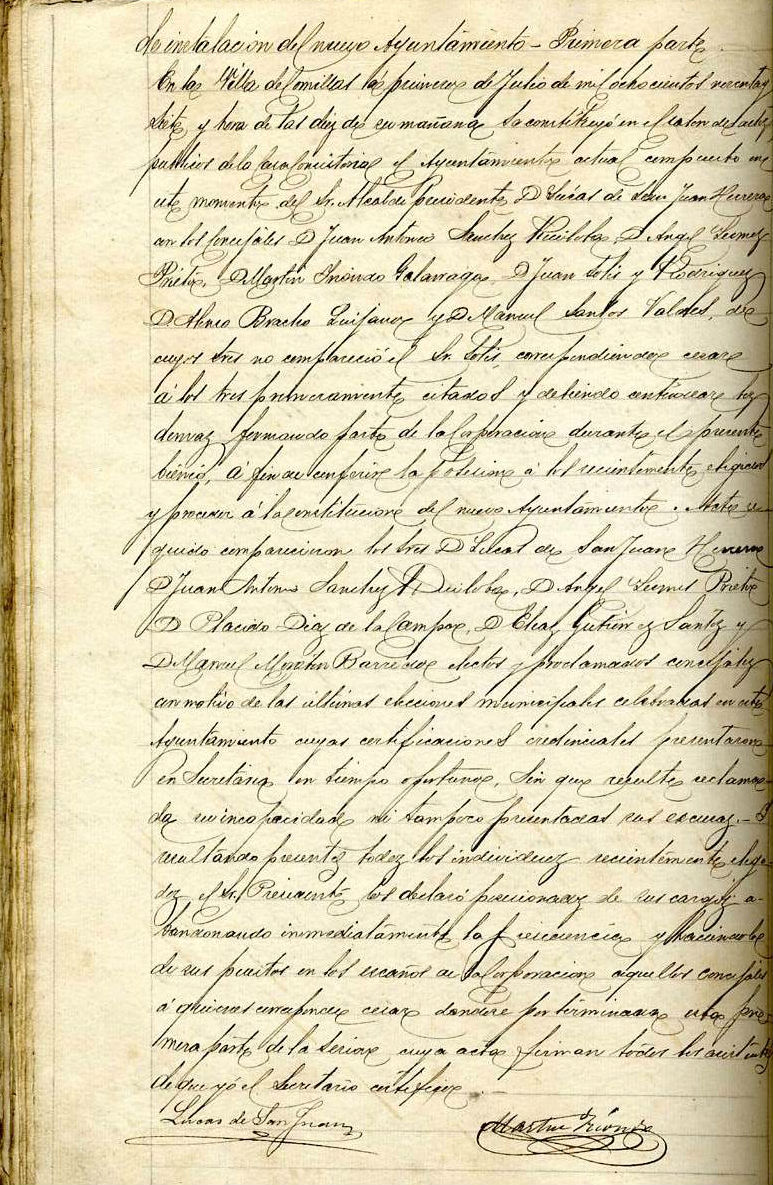 de instalación del nuevo Ayuntamiento - Primera parte
En la Villa de Comillas a primero de Julio de mil ochocientos noventa y
siete y hora de las diez de su mañana se constituyó en el salon de actos
publicos de la Casa Consistorial el Ayuntamiento actual compuesto en
este momento del Sr. Alcalde Presidente D Lucas de San Juan Herrero
con los Concejales D Juan Antonio Sanchez D Angel
Prieto, D Martin Galarraga, D Juan Solis y Rodriguez
D Bracho y D Manuel Santos Valdes, de
cuyos tres no compareció el Sr. Solis, correspondiendo cesar
á los tres primeramente citados y debiendo continuar los
demas formando parte de la Corporacion durante el presente
bienio, á fin de conferir la posesion á los recientemente elegidos
y proceder á la constitucion del nuevo Ayuntamiento. Acto se-
guido comparecieron los tres D Lucas de San Juan Herrero
D Juan Antonio Sanchez, D Angel Prieto
D Placido Diaz de la Campa, D Gutierrez Santos y
D Manuel Martin Barreda electos y proclamados concejales
con motivo de las ultimas elecciones municipales celebradas en este
Ayuntamiento cuyas certificaciones credenciales presentaron
en Secretaria en tiempo oportuno, sin que resulte reclama-
da su incapacidad ni tampoco presentadas sus escusas. - Y
resultando presentes todos los individuos recientemente elegi-
dos el Sr. Presidente los declaró posesionados de sus cargos, a-
bandonando inmediatamente la presidencia y haciendolo
de sus puestos en los escaños de la Corporacion aquellos concejales
á quienes corresponde cesar dandose por terminada esta pri-
mera parte de la sesion cuya acta firman todos los asistentes
de que yo el Secretario certifico
Lucas de San Juan Martin